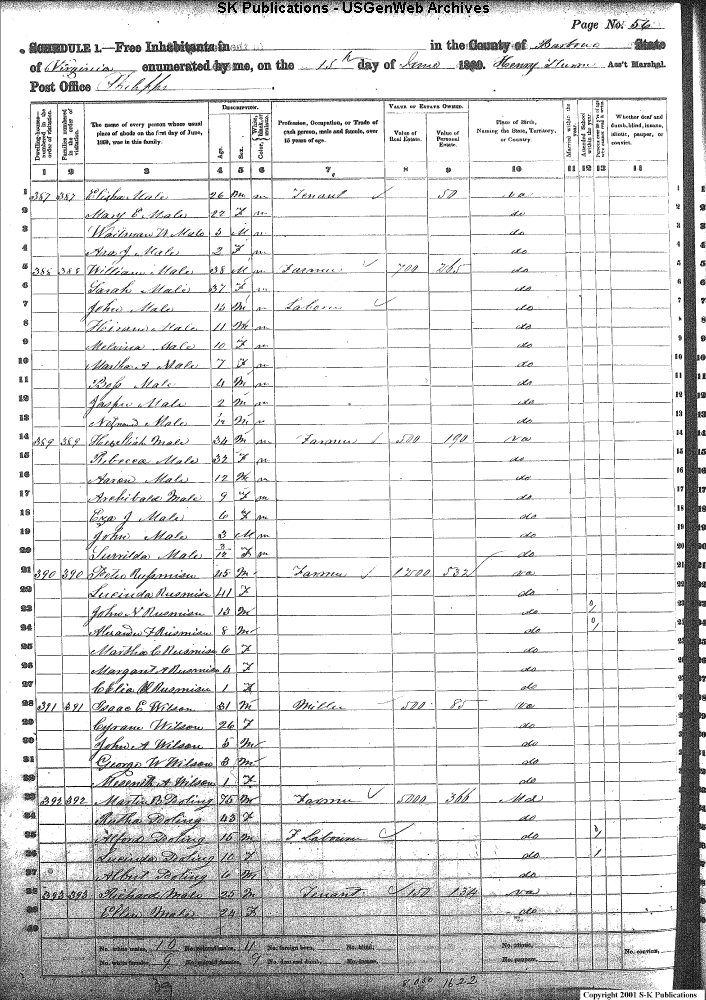 SK Publications - USGenWeb Archives
Page No. 56
SCHEDULE 1.—Free Inhabitants in in the County of Barbour State
of Virginia enumerated by me, on the 15th day of June 1860. Henry Ass't Marshal.
Post Office Philippi
Dwelling-house—numbered in the order of visitation. Families numbered in the order of visitation. The name of every person whose usual place of abode on the first day of June, 1860, was in this family. DESCRIPTION. Age. Sex. Color, White, black, or mulatto. Profession, Occupation, or Trade of each person, male and female, over 15 years of age. VALUE OF ESTATE OWNED. Value of Real Estate. Value of Personal Estate. Place of Birth, Naming the State, Territory, or Country. Married within the year. Attended School within the year. Whether deaf and dumb, blind, insane, idiotic, pauper, or convict.
1 2 3 4 5 6 7 8 9 10 11 12 13 14
1 387 387 Elisha Male 26 m m Tenant 50 va 1
2 Mary E Male 22 F m do 2
3 Waitman Male 5 M m do 3
4 Ara J Male 2 F m do 4
5 388 388 William Male 38 M m Farmer 700 265 do 5
6 Sarah Male 37 F m do 6
7 John Male 15 m m Labour do 7
8 Hiram Male 11 m m do 8
9 Melvina Male 10 F m do 9
10 Martha A Male 7 F m do 10
11 Male 4 m m do 11
12 Jasper Male 2 m m do 12
13 Male m m do 13
14 389 389 Hezekiah Male 34 m m Farmer 500 190 va 14
15 Rebecca Male 32 F m do 15
16 Aaron Male 12 m m do 16
17 Archibald Male 9 F m do 17
18 Eza J Male 6 F m do 18
19 John Male 3 M m do 19
20 Male 3/12 F m do 20
21 390 390 Peter Rusmisu 45 m Farmer 1200 532 va 21
22 Lucinda Rusmisu 41 F do 22
23 John N Rusmisu 13 m do 23
24 Alexander F Rusmisu 8 m do 24
25 Martha C Rusmisu 6 F do 25
26 Margaret A Rusmisu 4 F do 26
27 Celia Rusmisu 1 F do 27
28 391 391 Isaac E Wilson 31 M Miller 500 85 va 28
29 Cyrani Wilson 26 F do 29
30 John A Wilson 5 m do 30
31 George W Wilson 3 m do 31
32 A Wilson 1 F do 32
33 392 392 Martin B Doling 75 m Farmer 5000 366 Md 33
34 Rutha Doling 43 F do 34
35 Alfred Doling 15 m F Labourer do 35
36 Lucinda Doling 10 F do 1 36
37 Albert Doling 6 m do 37
38 393 393 Richard Male 25 m Tenant 134 va 38
39 Male 24 F do 39
40 40
No. white males, 10 No. colored males, 11 No. foreign born, No. blind, No. idiotic, No. convicts,
No. white females, 9 No. colored females, 9 No. deaf and dumb, No. insane, No. paupers,
39 8,000 1622
Copyright 2001 S-K Publications